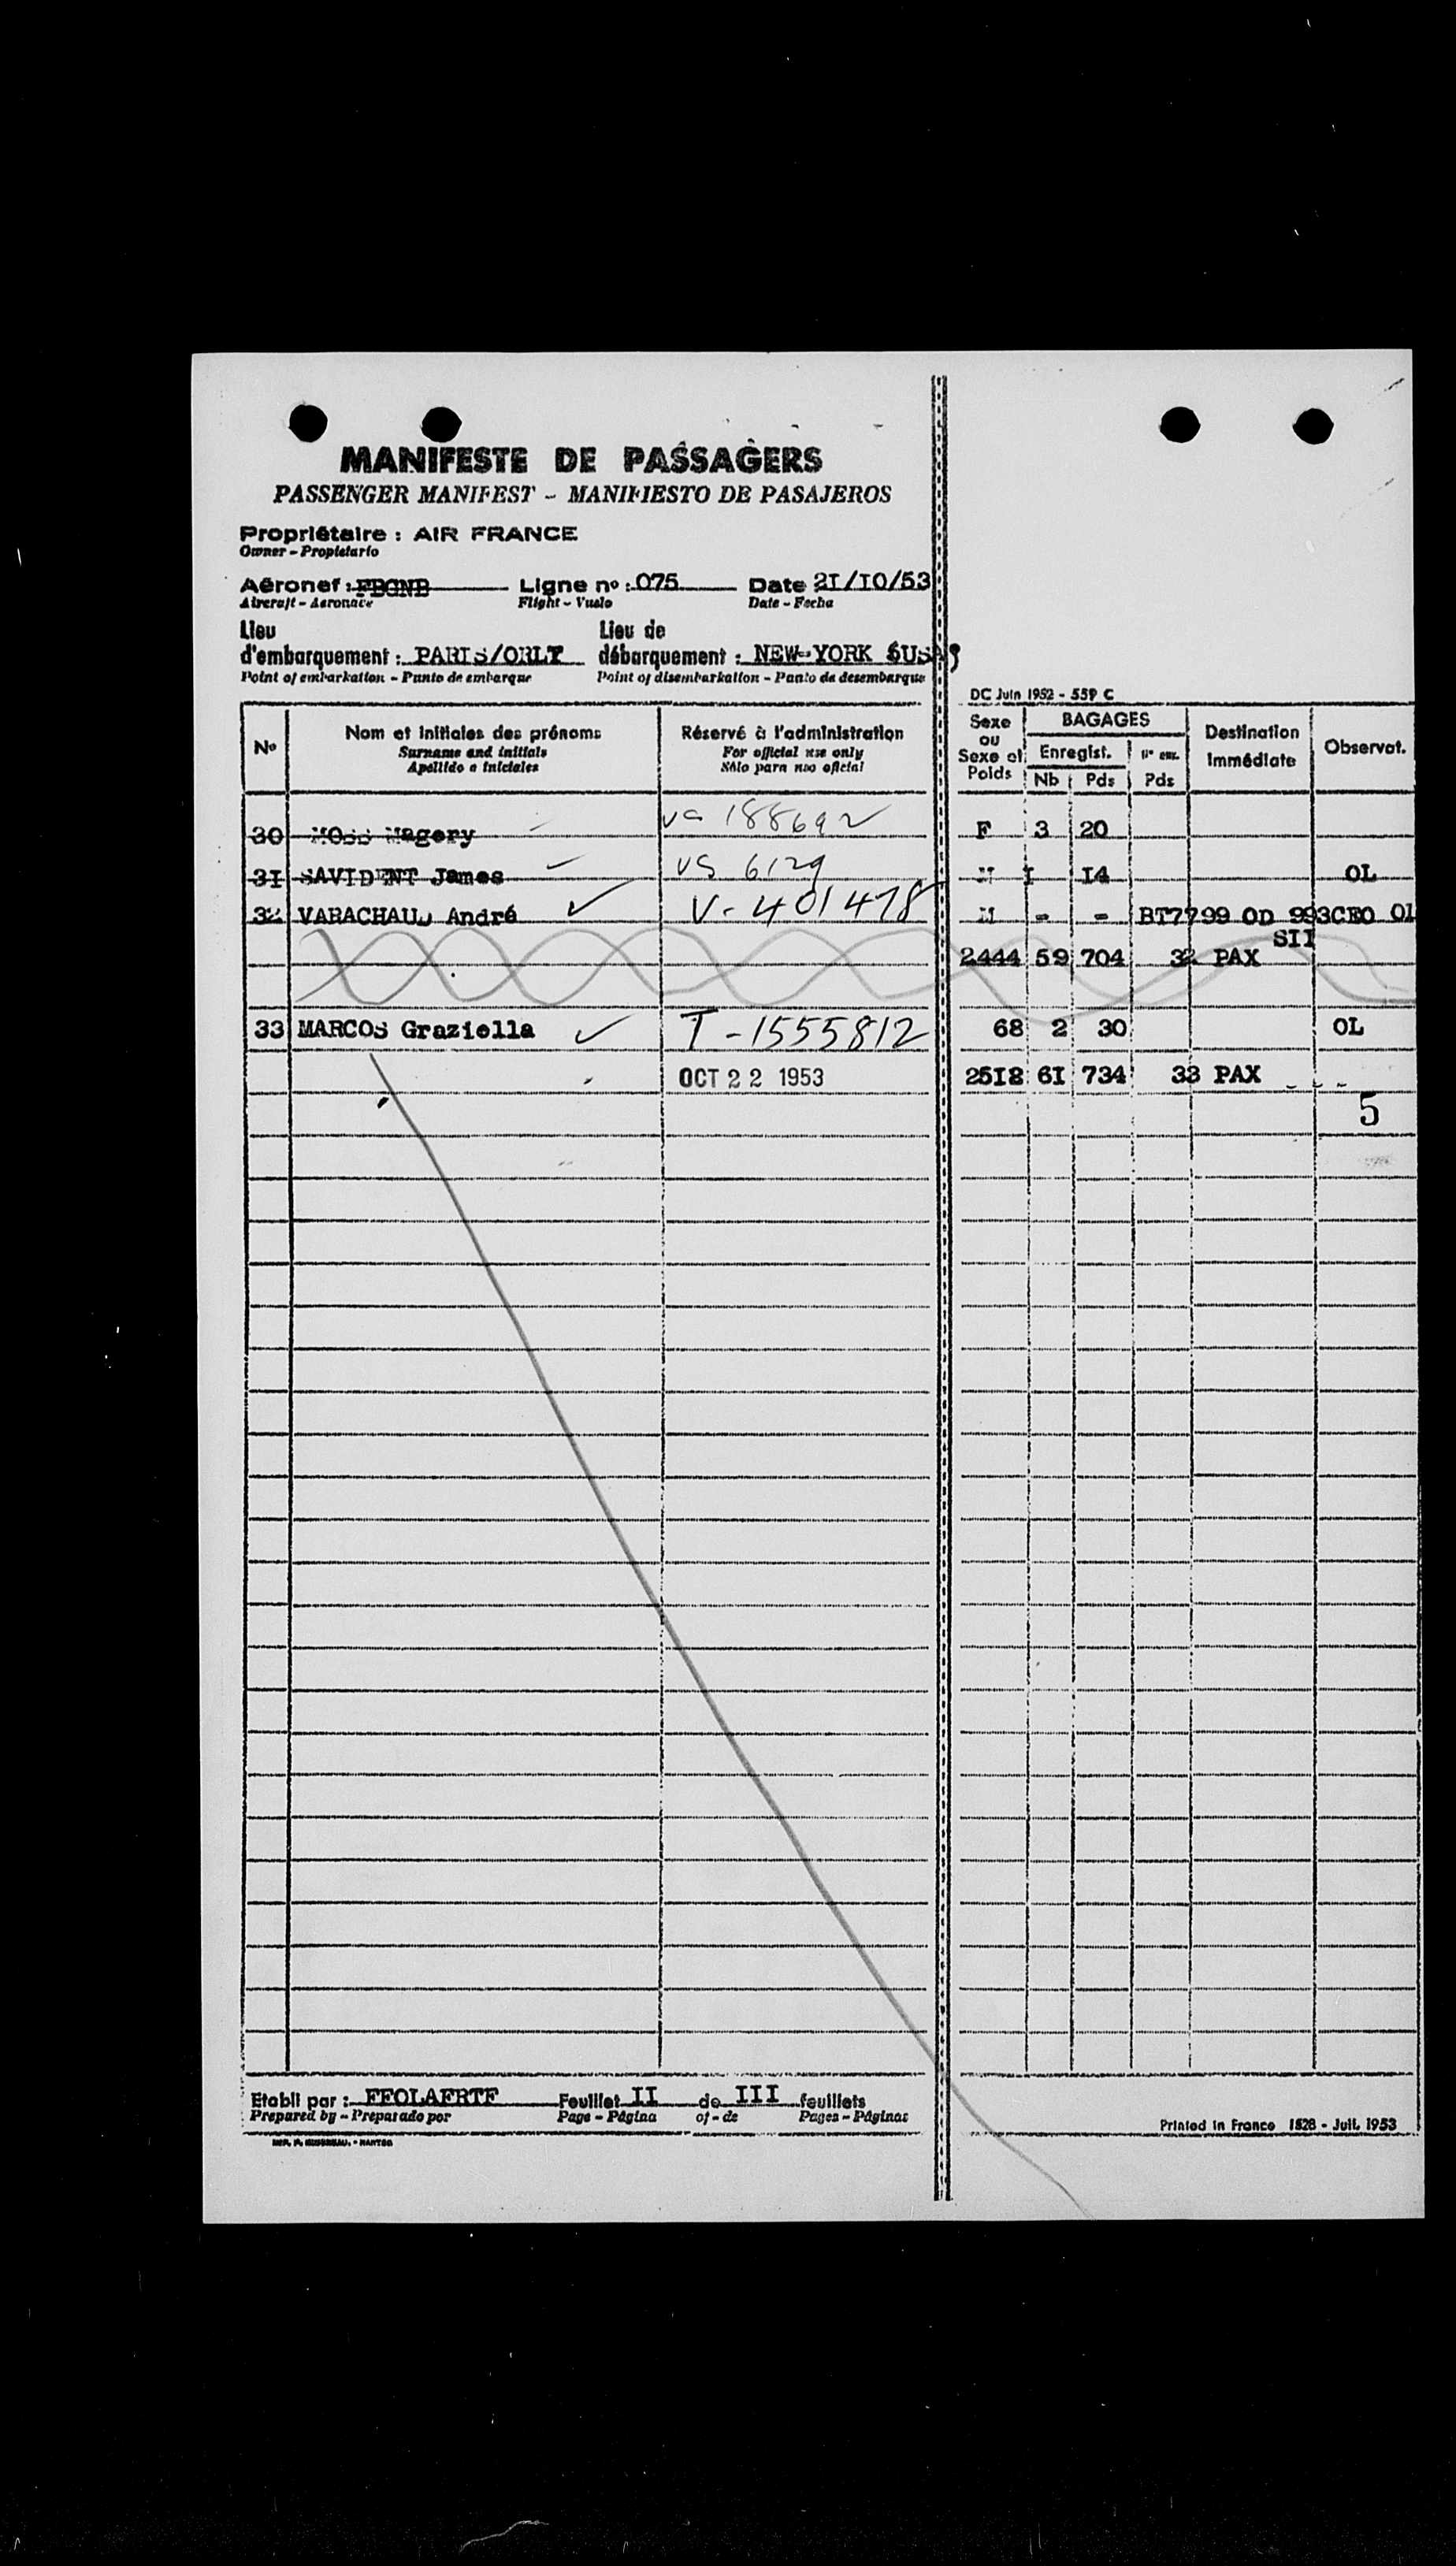 MANIFESTE DE PASSAGERS
PASSENGER MANIFEST - MANIFIESTO DE PASAJEROS
Propriétaire : AIR FRANCE
Owner - Propietario
Aéronef : FBGNB Ligne nº : 075 Date 2I/I0/53
Aircraft - Aeronave Flight - Vuelo Date - Fecha
Lieu Lieu de
d'embarquement : PARIS/ORLY débarquement : NEW-YORK
Point of embarkation - Punto de embarque Point of disembarkation - Punto de desembarque
DC Juin 1952 - 559 C
Nº Nom et initiales des prénoms Réservé à l'administration Sexe ou Sexe et Poids BAGAGES Destination Immédiate Observat.
Surname and initials For official use only Enregist.
Apellido e iniciales Sólo para uso oficial Nb Pds Pds
30 MOSS Magery 188692 F 3 20
3I SAVIDENT James VS 6129 M I I4 OL
32 VARACHAUD André V-401478 M - - BT7799 OD 993CEO OL
SII
2444 59 704 32 PAX
33 MARCOS Graziella T-1555812 68 2 30 OL
OCT 22 1953 25I8 6I 734 33 PAX
5
Etabli par : FFOLAFRTF Feuillet II de III feuillets
Prepared by - Preparado por Page - Página of - de Pages - Páginas
Printed in France 1828 - Juil. 1953